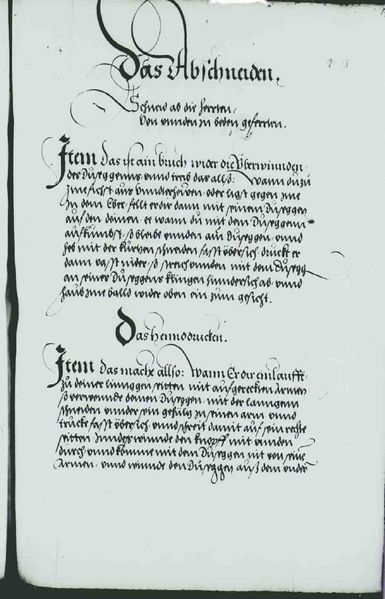 Das Abschneiden.
Schneid ab die herten,
Von unnden zu beden geferten.
Item das ist ain bruch wider die Uberwinnden
der Dusseggen unnd treib das allso: wann du zu
Ime fichst aus unnderhuten, oder ligst gegen Ime
In dem Eber, fellt er dir dann mit seinem Dusseggen
auf den deinen, er wann du mit dem Dusseggen
aufkumbst, so bleib unnden am Dusseggen, unnd
heb mit der kurtzen schneiden fasst ubersich, druckt er
dann vasst nider so streich unnden mit dem Dusegg
an seiner Dusseggens klingen hindersich ab, unnd
haw Ime balld wider oben ein zum gesicht.
Das heimdrucken.
Item das mache allso: Wann Er dir einlaufft
zu deiner linnggen seitten mit aufgerecken Armen
so verwennde deinen Dusseggen, mit der lanngen
schneiden unnder sein gehilz in seinen arm unnd
truckh fasst ubersich unnd schreit damit auf sein rechte
seitten Inndes winnde den knopff mit unnden
durch unnd komme mit dem Dusseggen mit von sein
Armen, unnd winnde den Dusseggen aus dem unnder